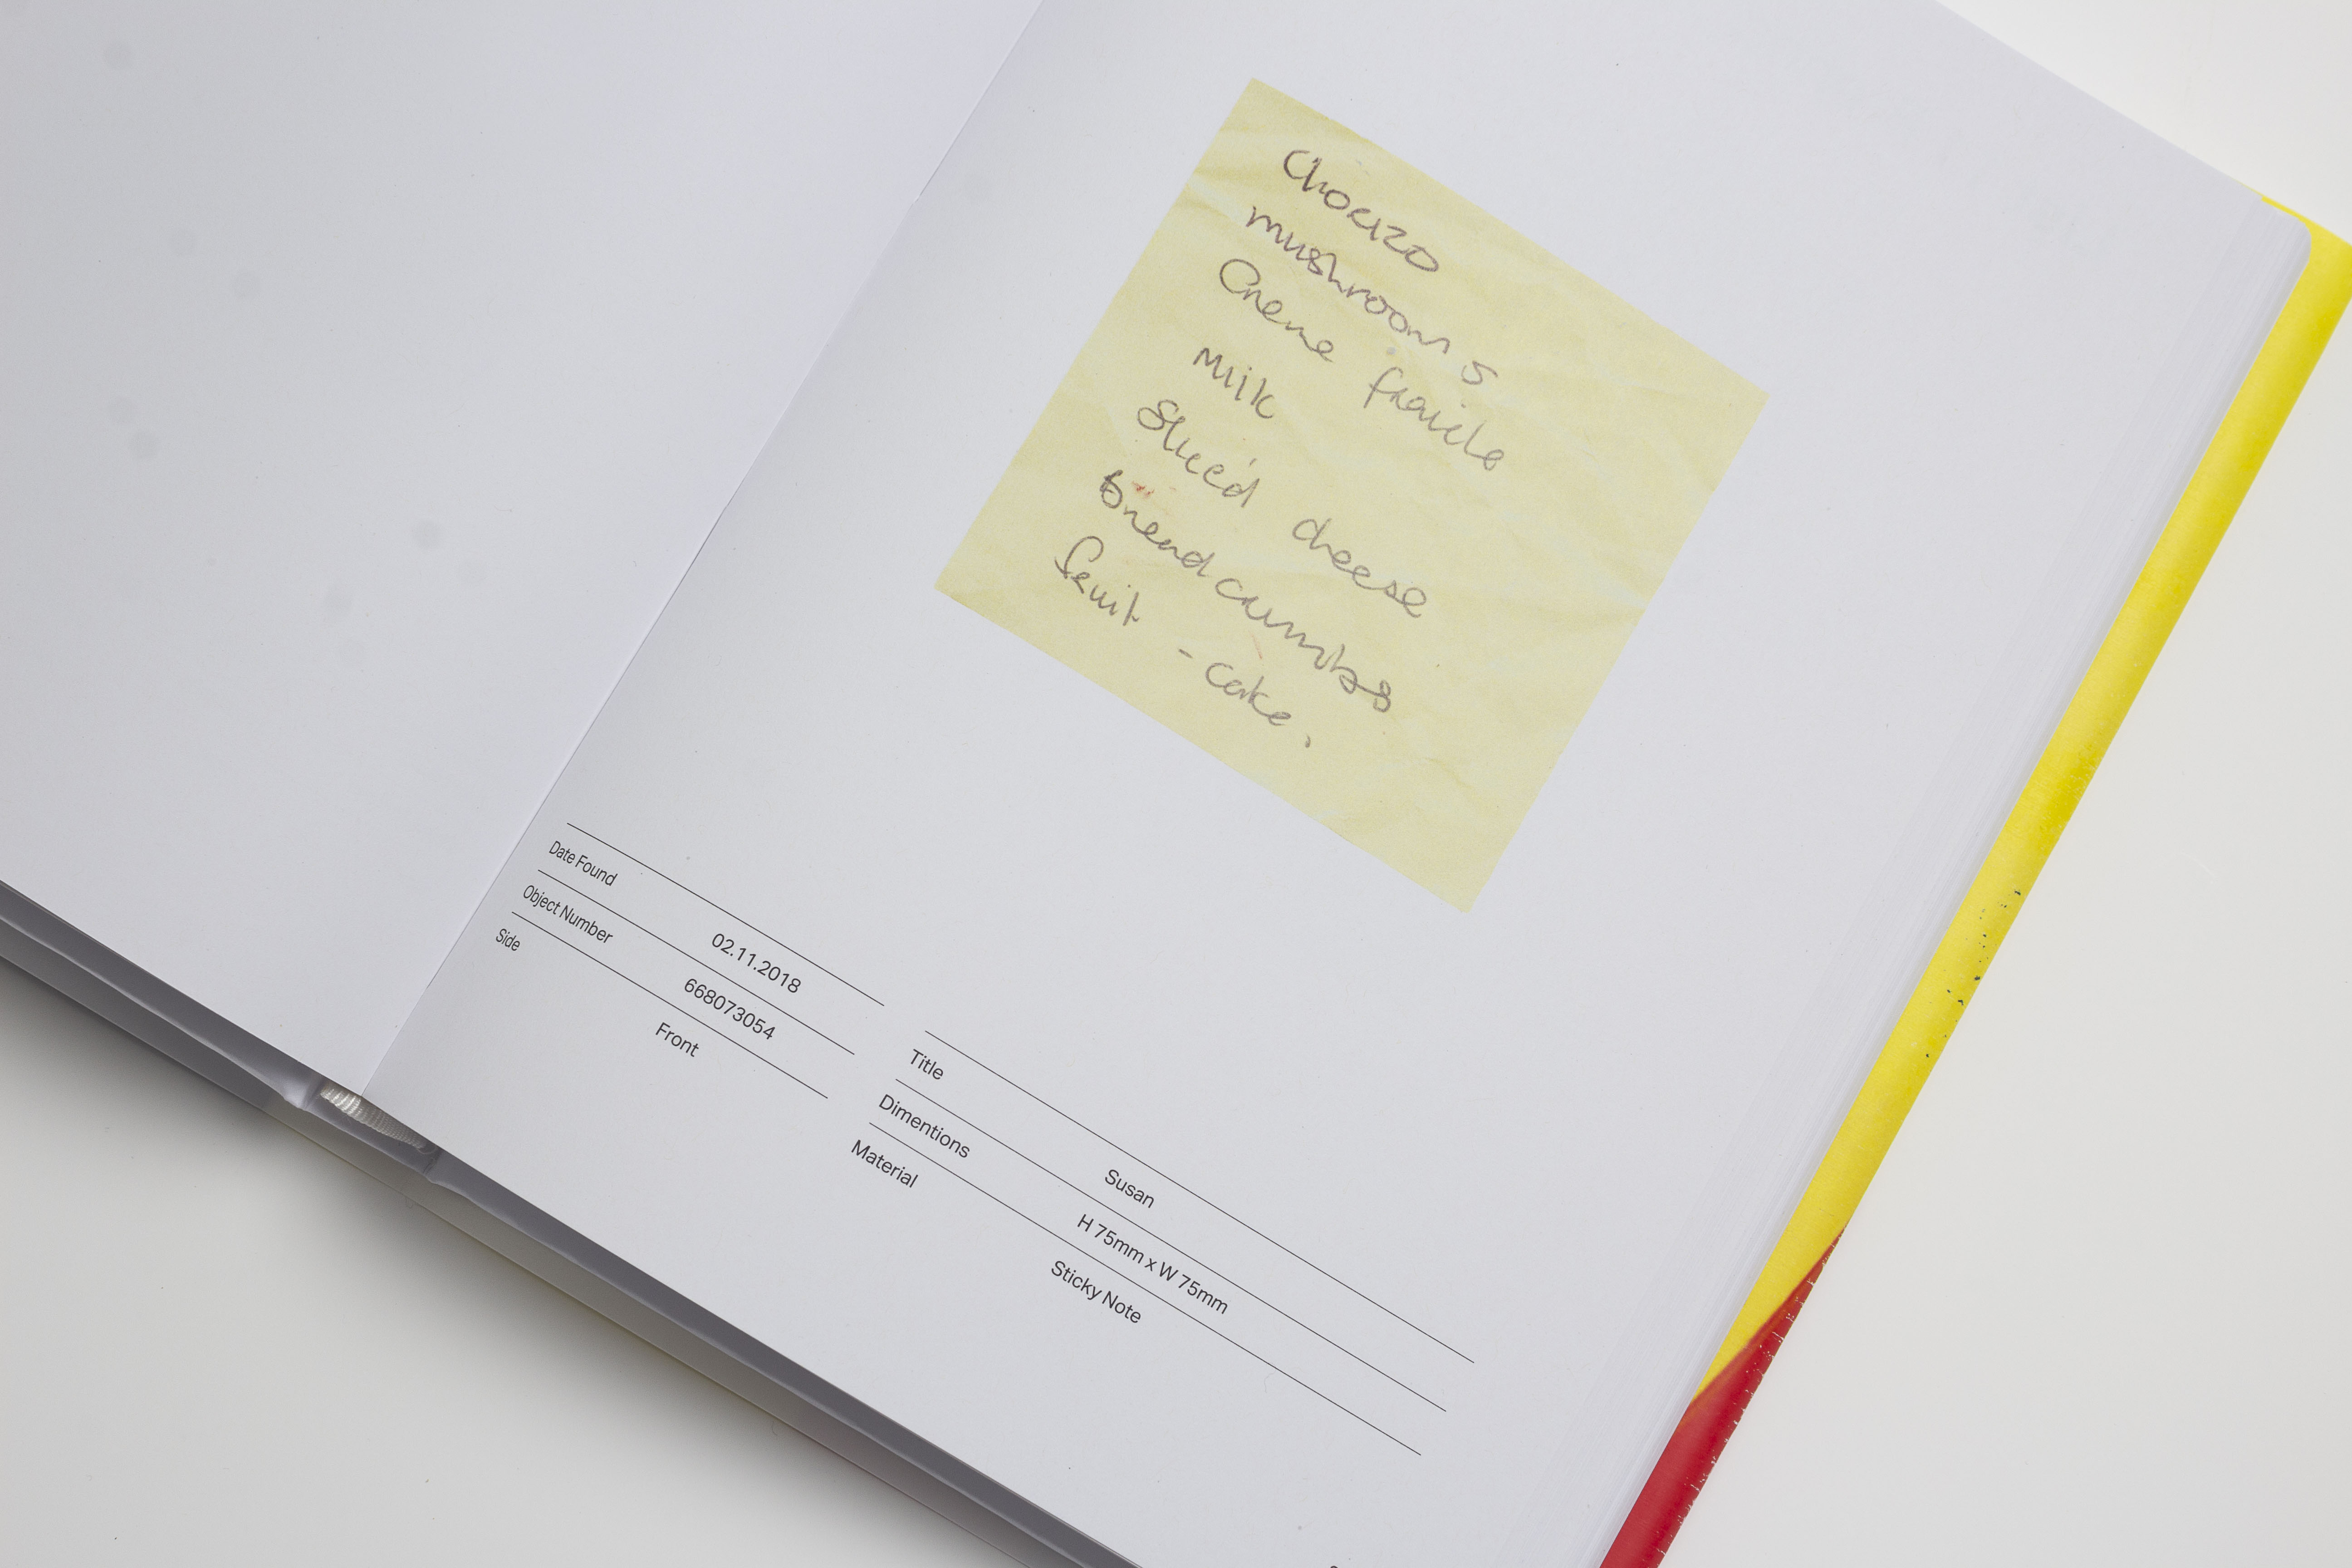 Chorizo
mushrooms
Creme fraiche
milk
Sliced cheese
breadcrumbs
fruit - cake.
Date Found 02.11.2018
Object Number 668073054
Side Front
Title Susan
Dimentions H 75mm x W 75mm
Material Sticky Note